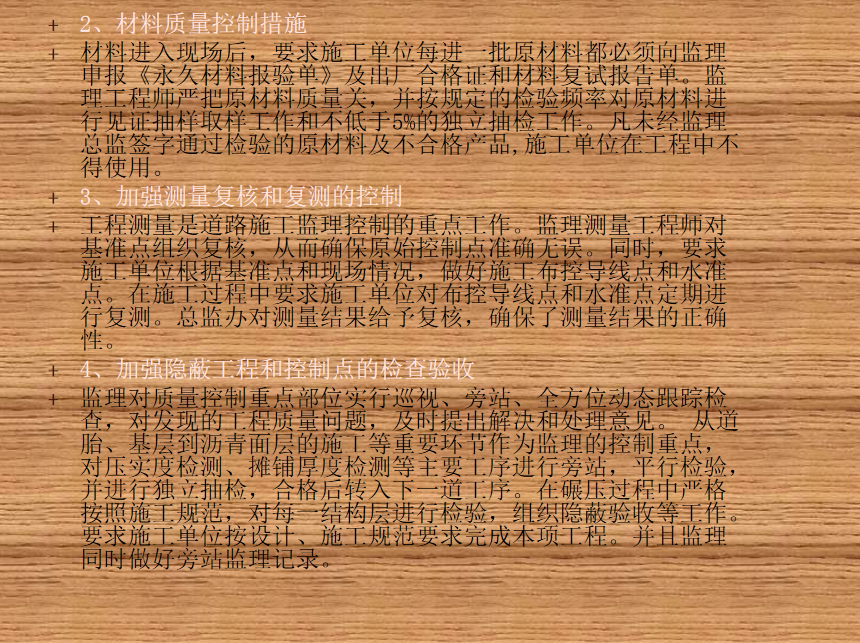 + 2、材料质量控制措施
+ 材料进入现场后，要求施工单位每进一批原材料都必须向监理
申报《永久材料报验单》及出厂合格证和材料复试报告单。监
理工程师严把原材料质量关，并按规定的检验频率对原材料进
行见证抽样取样工作和不低于5%的独立抽检工作。凡未经监理
总监签字通过检验的原材料及不合格产品,施工单位在工程中不
得使用。
+ 3、加强测量复核和复测的控制
+ 工程测量是道路施工监理控制的重点工作。监理测量工程师对
基准点组织复核，从而确保原始控制点准确无误。同时，要求
施工单位根据基准点和现场情况，做好施工布控导线点和水准
点。在施工过程中要求施工单位对布控导线点和水准点定期进
行复测。总监办对测量结果给予复核，确保了测量结果的正确
性。
+ 4、加强隐蔽工程和控制点的检查验收
+ 监理对质量控制重点部位实行巡视、旁站、全方位动态跟踪检
查，对发现的工程质量问题，及时提出解决和处理意见。 从道
胎、基层到沥青面层的施工等重要环节作为监理的控制重点，
对压实度检测、摊铺厚度检测等主要工序进行旁站，平行检验，
并进行独立抽检，合格后转入下一道工序。在碾压过程中严格
按照施工规范，对每一结构层进行检验，组织隐蔽验收等工作。
要求施工单位按设计、施工规范要求完成本项工程。并且监理
同时做好旁站监理记录。